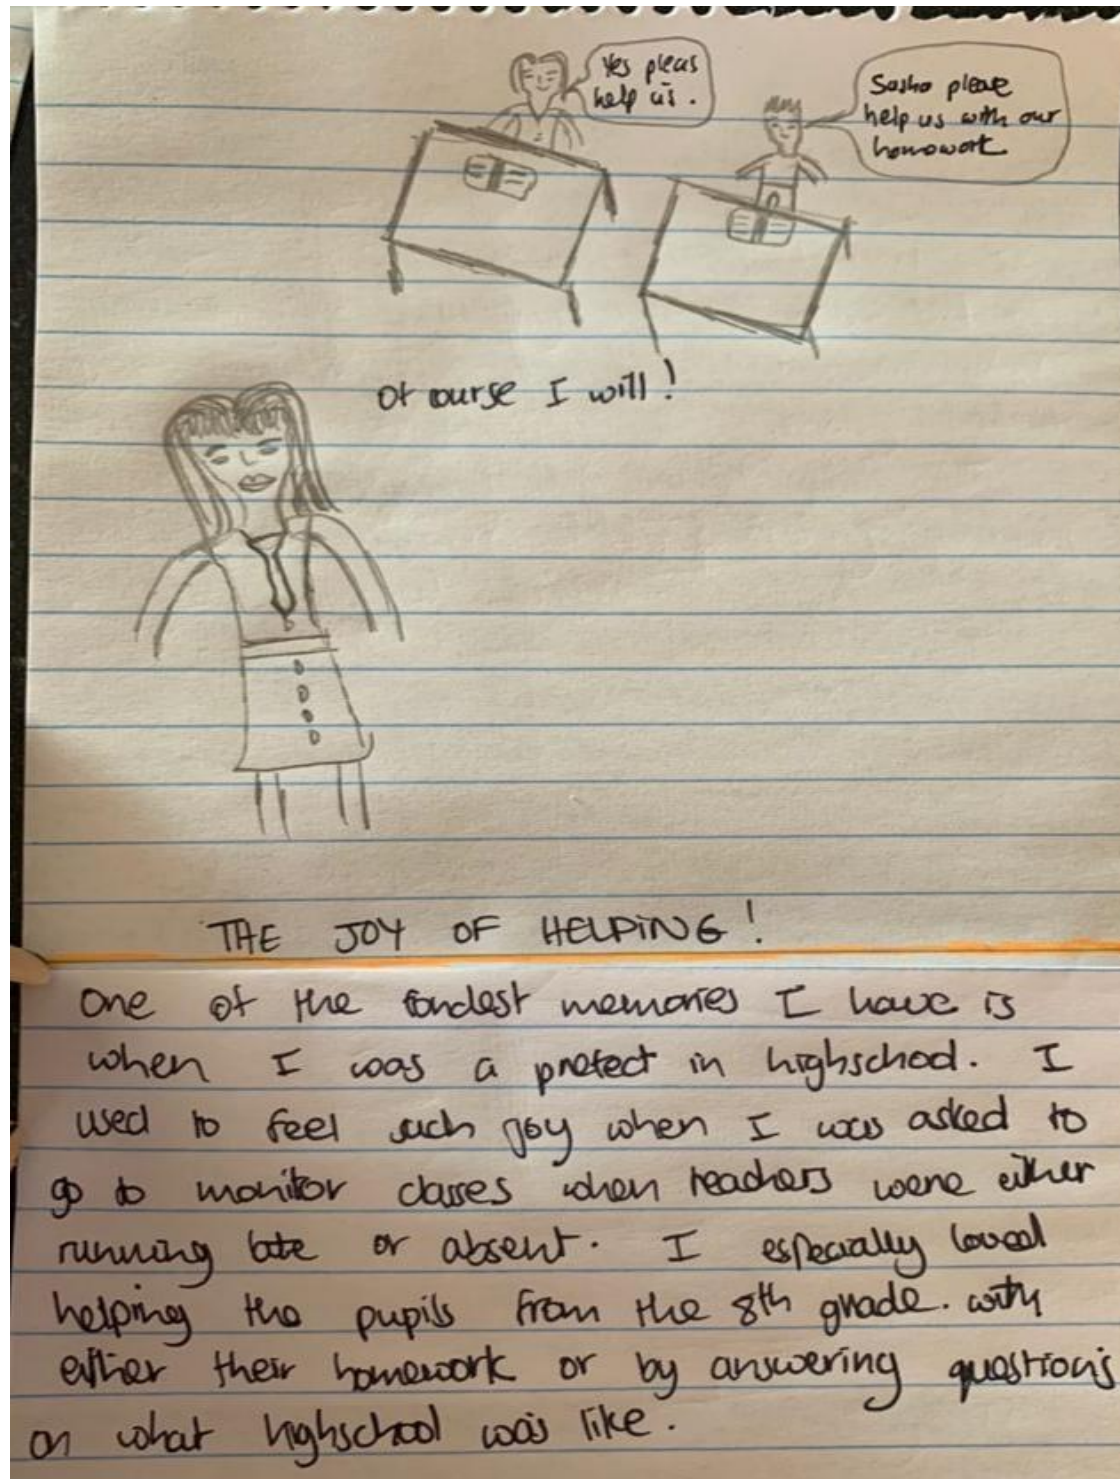 Yes pleas
help us.
Sasha please
help us with our
homework
Of course I will!
THE JOY OF HELPING!
One of the fondest memories I have is
when I was a prefect in highschool. I
used to feel such joy when I was asked to
go to monitor classes when teachers were either
running late or absent. I especially loved
helping the pupils from the 8th grade. with
either their homework or by answering questions
on what highschool was like.